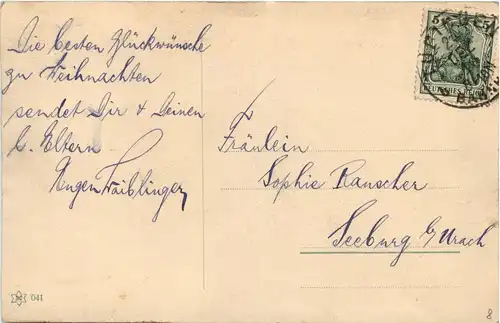 Die besten Glückwünsche
zu Weihnachten
sendet Dir & Deinen
l. Eltern
Eugen Waiblinger
Fräulein
Sophie Rauscher
Seeburg b/ Urach
5 5
DEUTSCHES REICH
041
8